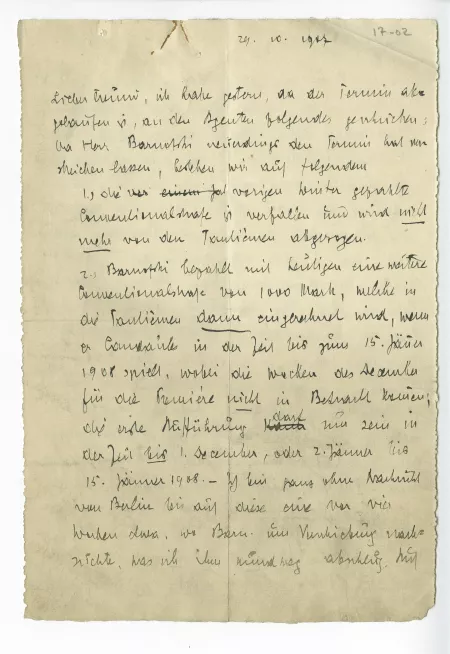 17-02
29. 10. 1907
Lieber Freund, ich habe gestern, da der Termin ab-
gelaufen ist, an den Agenten folgendes geschrieben:
Da Herr Barnofski neuerdings den Termin hat ver-
streichen lassen, bestehen wir auf folgendem
1., die vor einem Ja vorigen Winter gezahlte
Conventionalstrafe ist verfallen und wird nicht
mehr von den Tantièmen abgezogen.
2., Barnofski bezahlt mit heutigen eine weitere
Conventionalstrafe von 1000 Mark, welche in
die Tantièmen dann eingerechnet wird, wenn
er Candaules in der Zeit bis zum 15. Jäner
1908 spielt, wobei die Wochen des December
für die Première nicht in Betracht kommen;
die erste Aufführung darf nur sein in
der Zeit bis 1. December, oder 2. Jänner bis
15. Jänner 1908. – Ich bin ganz ohne Nachricht
von Berlin bis auf diese eine vor vier
Wochen etwa, wo Barn. um Verrückung nach-
suchte, was ich ihm rundweg abschlug. Auf